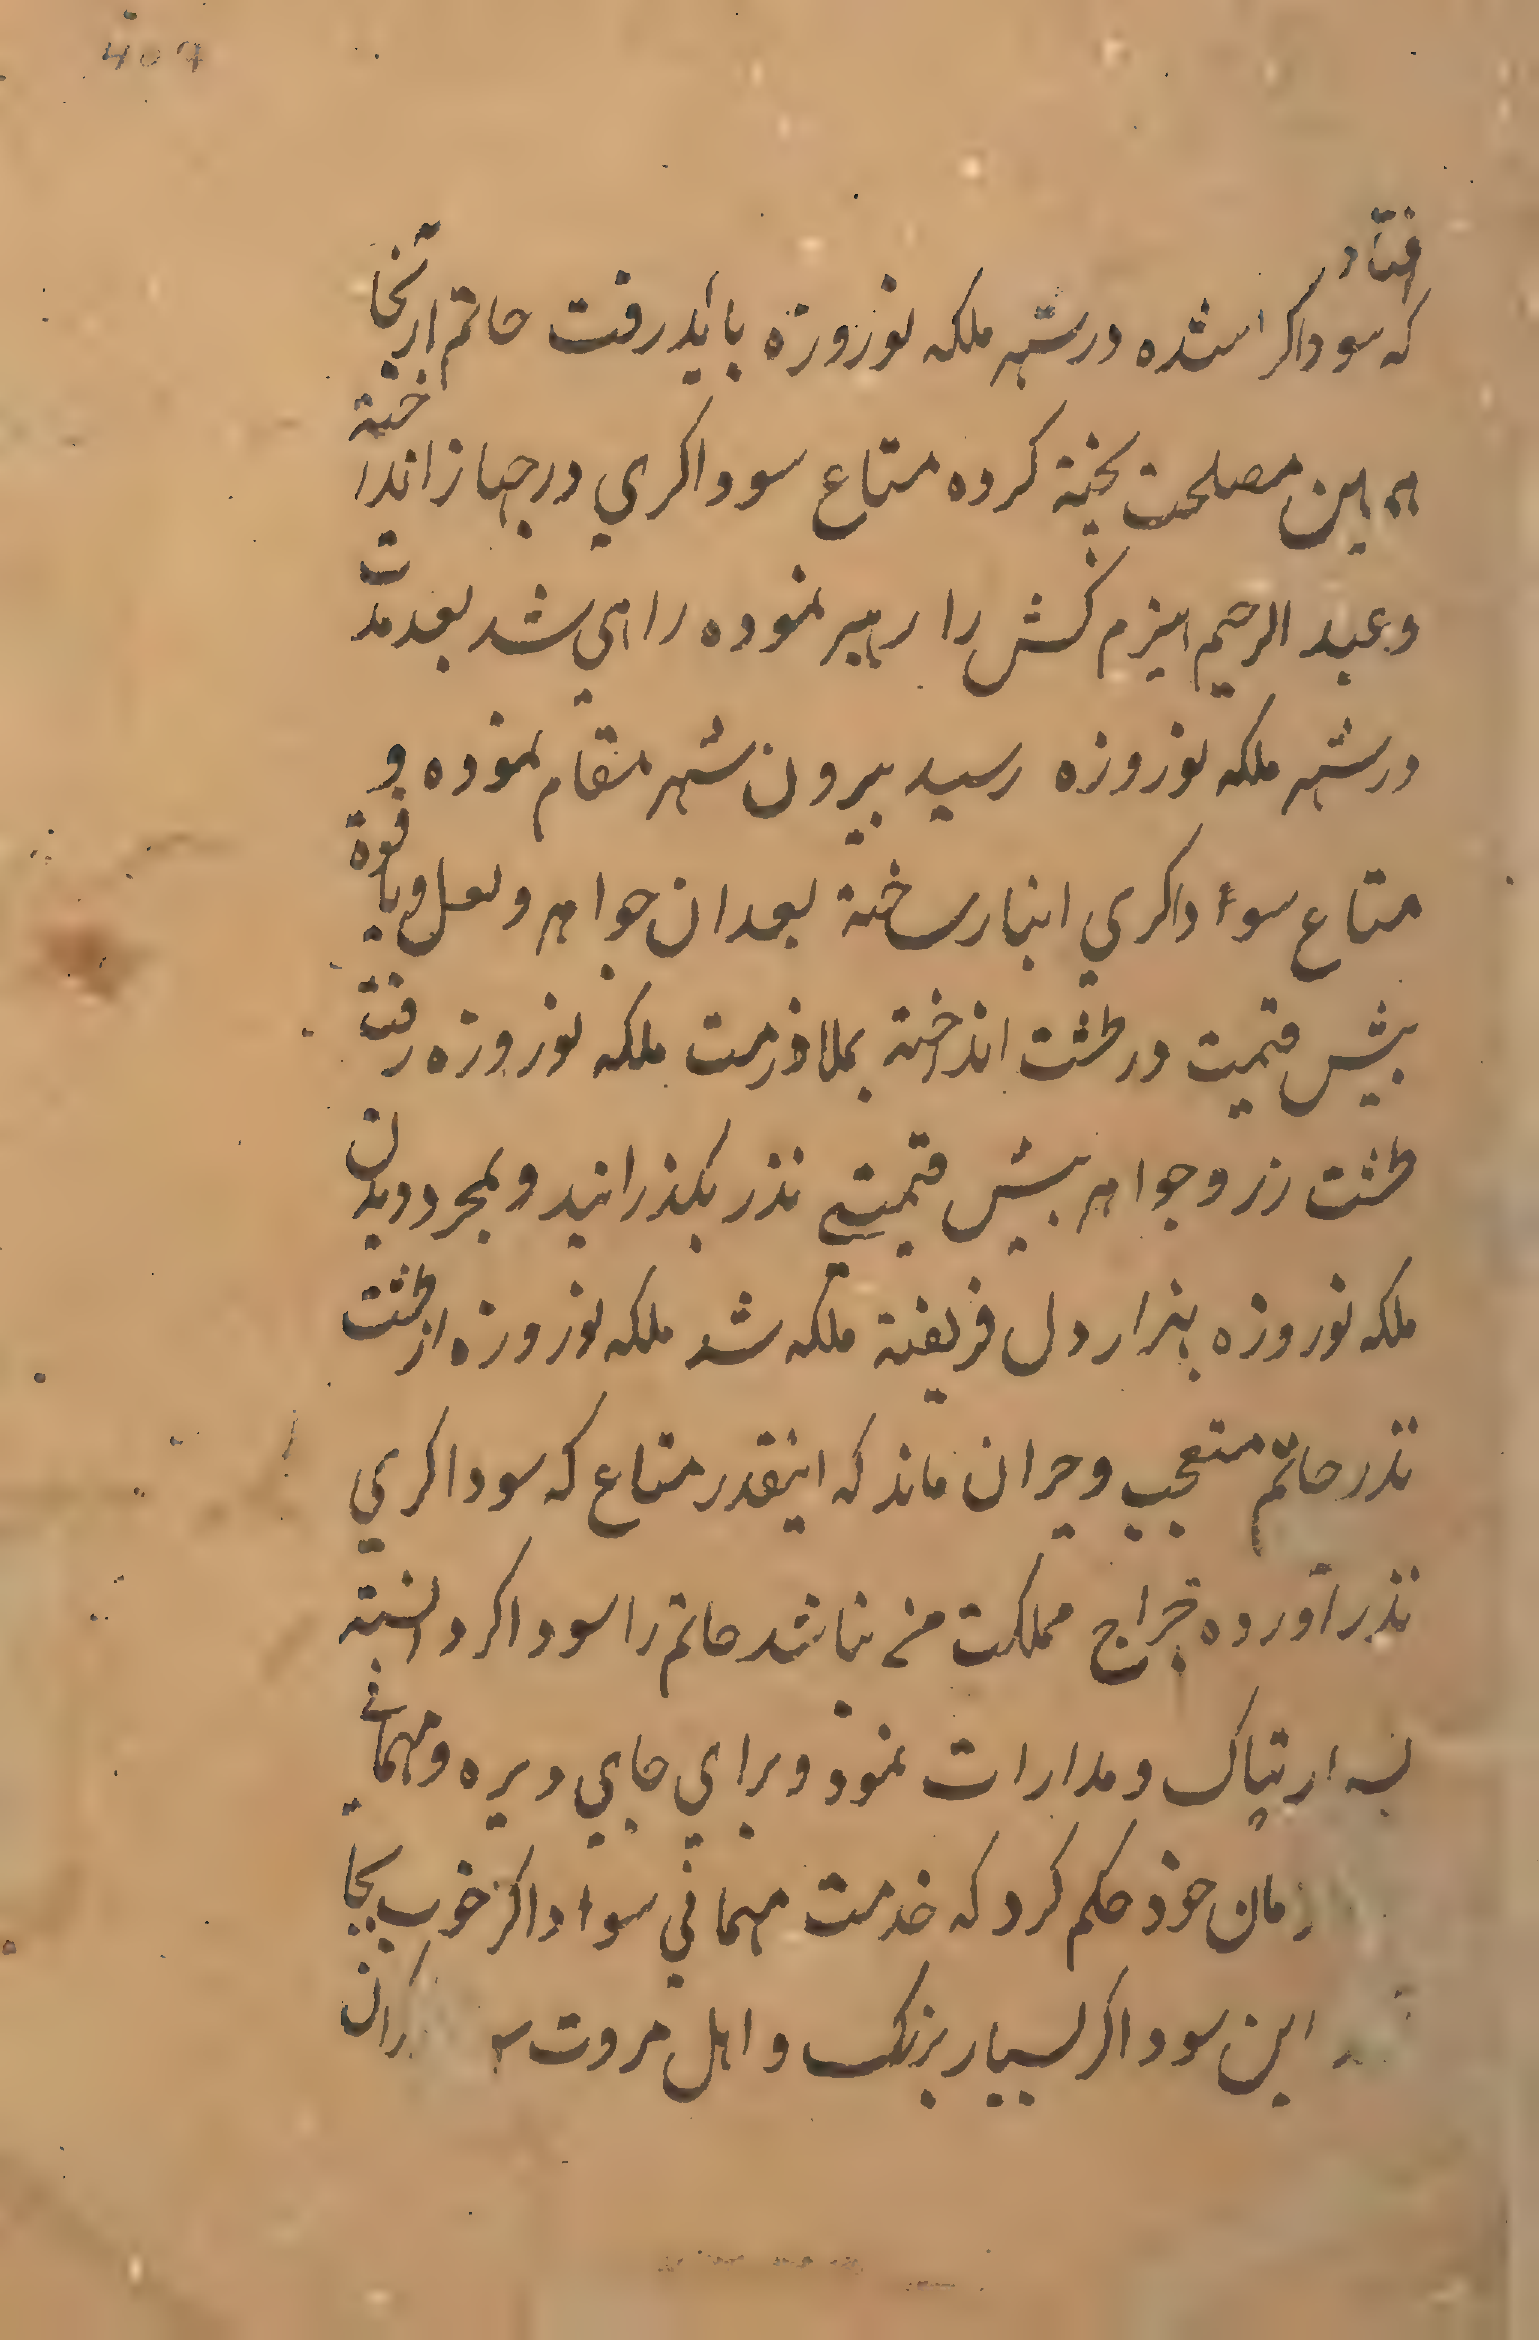 افتاد
که سوداکر اشده در شهر ملکه نوروزه بائد رفت حاتم ازنجا
همین مصلحت پخته کرده متاع سوداکري در جهاز انداخته
و عبد الرحیم هیزم کش را رهبر نموده راهي شد بعد مدت
در شهر ملکه نوروزه رسید بیرون شهر مقام نموده و
متاع سوداکري انبار ساخته بعد ان جواهر و لعل و یاقوة
بیش قیمت در طشت انداخته بملاذمت ملکه نوروزه رفت
طشت زر و جواهر بیش قیمتي نذر بکذرانید و بمجرد دیدن
ملکه نوروزه بهزار دل فریفته ملکه شد ملکه نوروزه از طشت
نذر حاتم متعجب و حیران ماند که اینقدر متاع که سوداکري
نذر آورده خراج مملکت من نباشد حاتم را سوداکر دانسته
بسیار تپاک و مدارات نمود و براي جاي دیره و مهماني
زمان خود حکم کرد که خدمت مهماني سوداکر خوب بجا
این سوداکر بسیار بزرک و اهل مروت